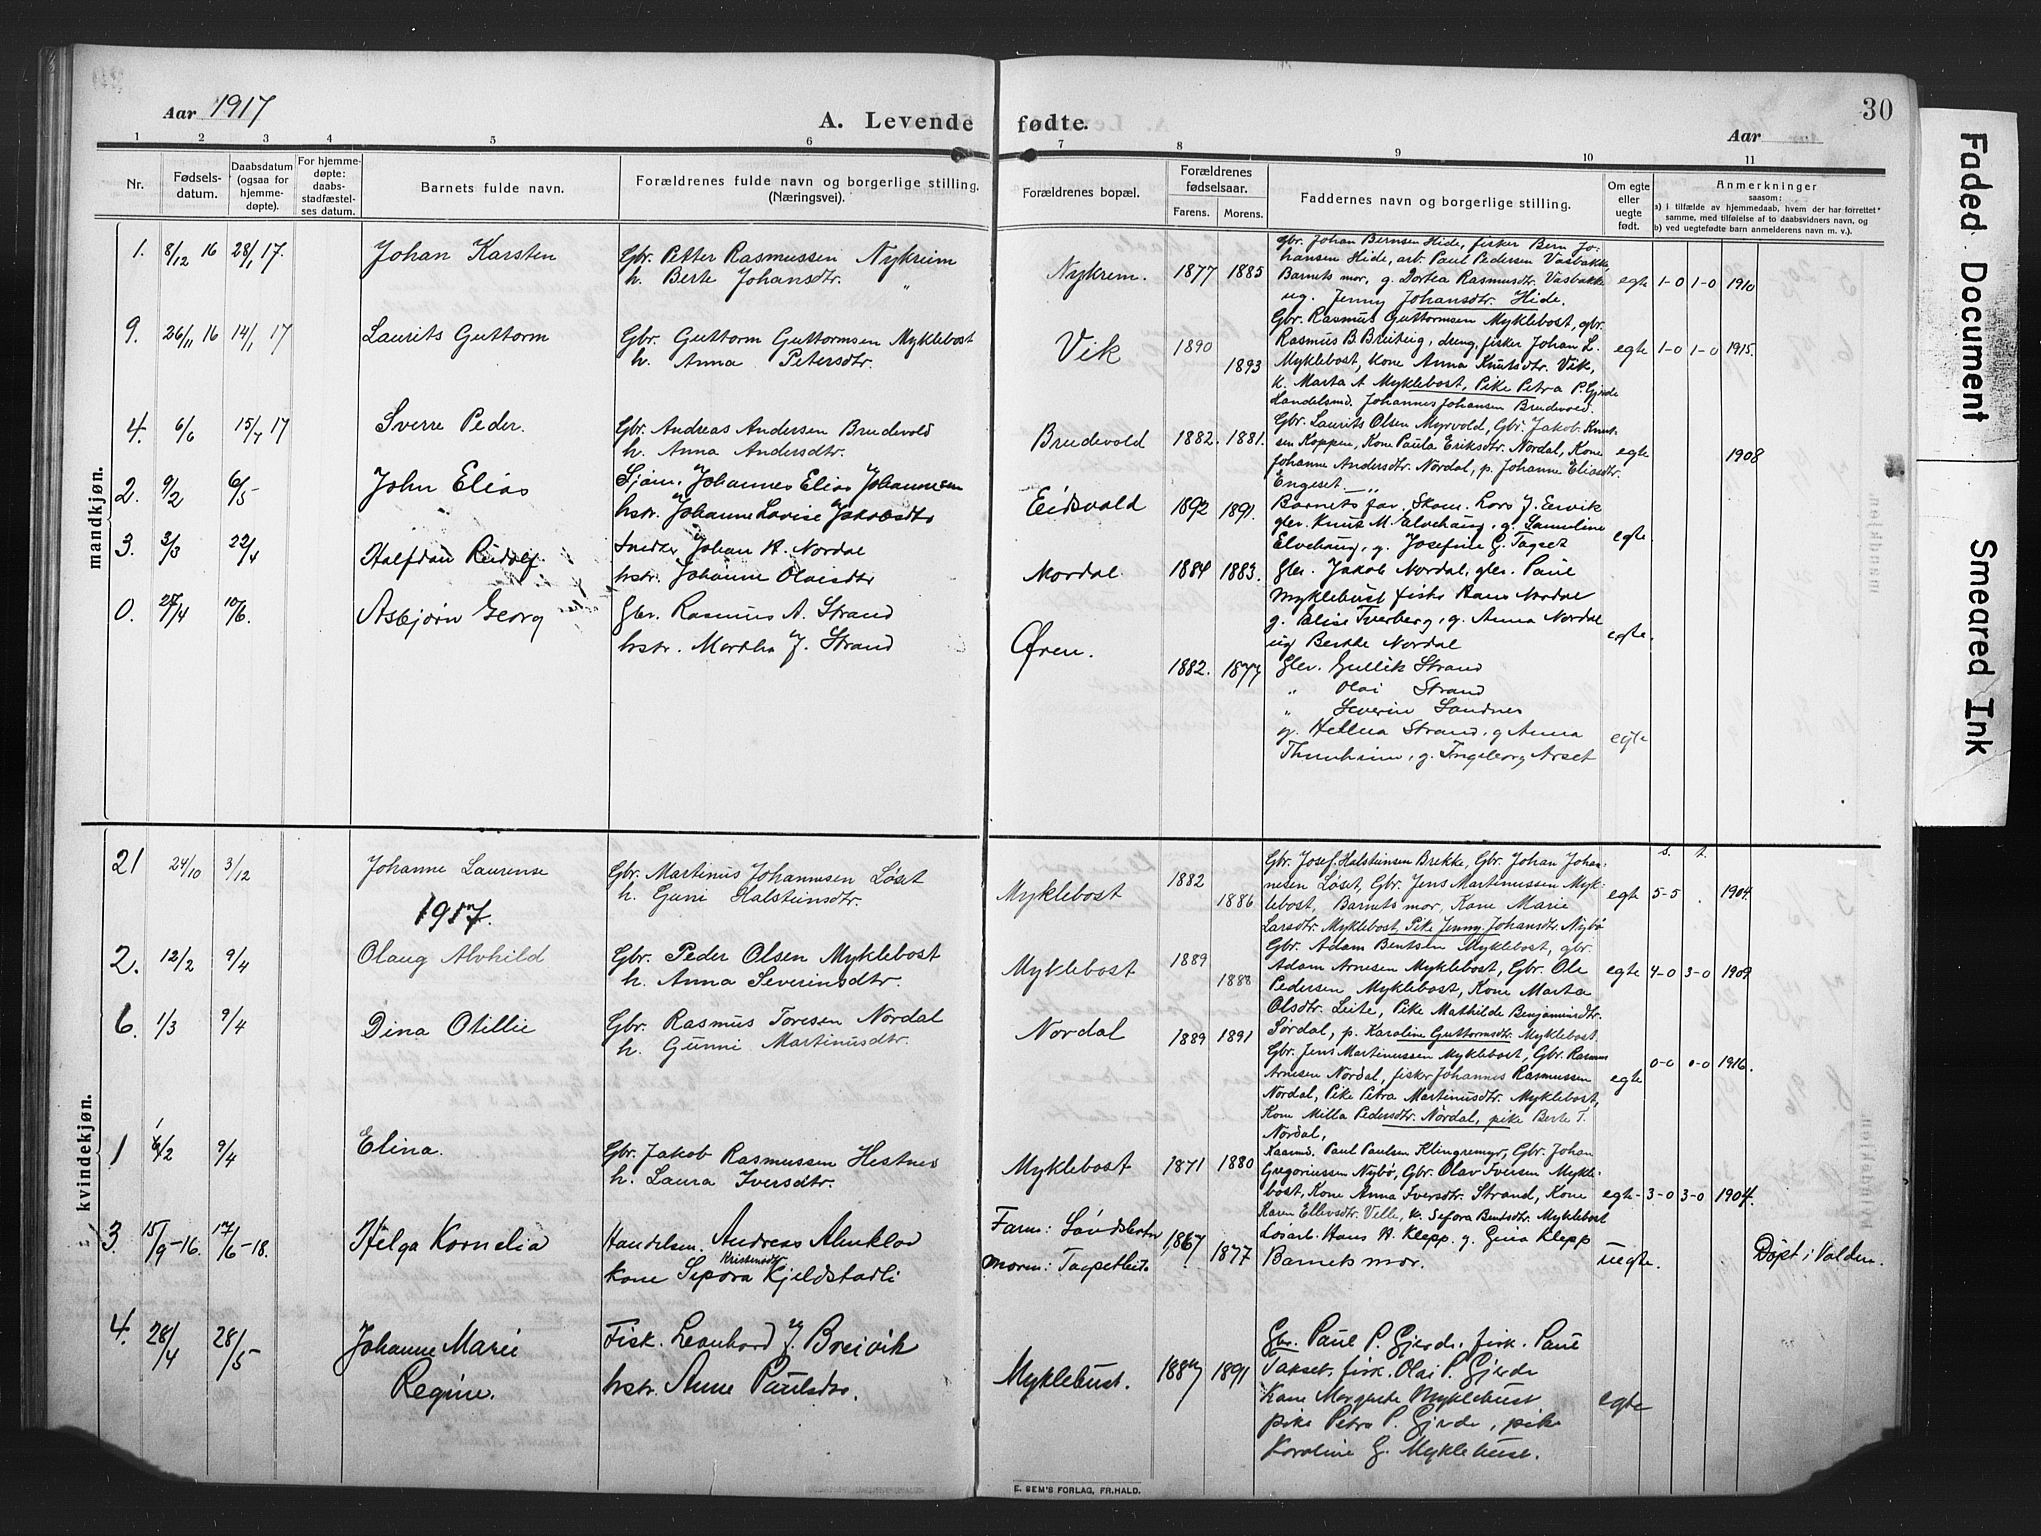 Aar 1917
A. Levende fødte.
Aar
30
1 2 3 4 5 6 7 8 9 10 11
Nr.
Fødsels-
datum.
Daabsdatum
(ogsaa for
hjemme-
døpte).
For hjemme-
døpte:
daabs-
stadfæstel-
ses datum.
Barnets fulde navn.
Forældrenes fulde navn og borgerlige stilling.
(Næringsvei).
Forældrenes bopæl.
Forældrenes
fødselsaar.
Farens. Morens.
Faddernes navn og borgerlige stilling.
Om egte
eller
uegte
født.
Anmerkninger
saasom:
a) i tilfælde av hjemmedaab, hvem der har forrettet
samme, med tilføielse af to daabsvidners navn, og
b) ved uegtefødte barn anmelderens navn m. v.).
mandkjøn.
1. 8/12 16 28/1 17. Johan Karsten
Gbr. Petter Rasmussen Nykreim
h. Berte Johansdtr. "
Nykrem. 1877 1885
Gbr. Johan Bernsen Hide, fisker Bern Jo-
hansen Hide, arb. Paul Pedersen Vasbakke,
Barnets mor, g. Dortea Rasmusdtr. Vasbakke
ug. Jenny Johansdtr. Hide.
egte 1-0 1-0 1910
9. 26/11 16 14/1 17 Laurits Guttorm
Gbr. Guttorm Guttormsen Myklebost
h. Anna Petersdtr.
Vik 1890 1893
Gbr. Rasmus Guttormsen Myklebost, gbr.
Rasmus B. Breiteig, dreng, fisker Johan L.
Myklebost, kone Anna Knutsdtr. Vik,
k. Marta A Myklebost, Pike Petra P. Gjerde
Handelsmd. Johannes Johansen Brudevold.
egte 1-0 1-0 1915.
4. 6/6 15/7 17 Sverre Peder.
Gbr. Andreas Andersen Brudevold
h. Anna Andersdtr.
Brudevold 1882. 1881.
Gbr. Laurits Olsen Myrvold, Gbr. Jakob Knut-
sen Koppen, Kone Paula Eriksdtr. Nordal, Kone
Johanne Andersdtr. Nordal, p. Johanne Eliasdtr.
Engeset "
egte 1908
2. 9/2 6/5 John Elias
Sjøm. Johannes Elias Johannesen
hstr. Johanne Lovise Jakobsdtr
Eidsvald 1892 1891.
Barnets far. Skom. Lars J. Ervik
gbr. Knut M. Elvehaug, g. Samuline
Elvehaug, g. Josefine G. Tagset
egte.
3. 3/3 22/4 Halfdan Rudolf.
Snedker Johan A. Nordal
hstr. Johanne Olaisdtr
Nordal. 1884 1883.
Gbr. Jakob Nordal, gbr. Paul
Myklebust fisker Hans Nordal
g. Elise Tverberg, g. Anna Nordal
ug Berthe Nordal
egte.
0. 27/4 10/6. Asbjørn Georg
Gbr. Rasmus A. Strand
hstr. Martha J. Strand
Øren. 1882. 1877
Gbr. Gullik Strand
" Olai Strand
" Severin Sandnes
g. Hellena Strand, g Anna
g. Ingeborg Årset
egte
kvindekjøn.
21 24/10 3/12 Johanne Laurense
Gbr. Martinus Johannesen Løset
h. Guni Halsteinsdtr.
Myklebost 1882 1886
Gbr. Josef Halsteinsen Brekke, Gbr. Johan Johan-
nesen Løset, Gbr. Jens Martinussen Myk-
lebost, Barnets mor, Kone Marie
Larsdtr. Myklebost, Pike Jenny Johansdtr. Nybø
egte s. 5-5 t. . 1904.
1917.
2. 12/2 9/4 Olaug Alvhild
Gbr. Peder Olsen Myklebost
h. Anna Severinsdtr.
Myklebost 1889 1888
Gbr. Adam Bentsen Myklebost, gbr.
Adam Arnesen Myklebost, Gbr. Ole
Pedersen Myklebost, Kone Marta
Olsdtr. Leite, Pike Mathilde Benjamindtr.
Sørdal, p. Karoline Guttormsdtr. Myklebost.
egte 4-0 3-0 1909
6. 1/3 9/4 Dina Otillie
Gbr. Rasmus Toresen Nordal
h. Gunni Martinusdtr.
Nordal 1889 1891
Gbr. Jens Martinussen Myklebost, Gbr. Rasmus
Arnesen Nordal, fisker Johannes Rasmussen
Nordal, Pike Petra Martinusdtr. Myklebost,
Kone Milla Pedersdtr. Nordal, pike Berte T.
Nordal,
egte 0-0 0-0 1916.
1 9/4 Elina.
Gbr. Jakob Rasmussen Hestnes
h. Laura Iversdtr.
Myklebost 1871 1880
Kaarmd. Paul Paulsen Klingremyr, Gbr. Johan
Gregoriussen Nybø, Gbr. Olav Iversen Mykle-
bost, Kone Anna Iversdtr. Strand, Kone
Karen Ellevsdtr. Velle, k. Sefora Bentsdtr. Myklebost
egte 3-0 3-0 1904.
3. 15/9-16. 17/6-18. Helga Kornelia
Handelsm. Andreas Almklov
Kristensdtr
Kone Sepora Kjeldstadli
Faren:
Moren: 1867 1877
Løsarb. Hans A. Klepp. g. Gina Klepp
Barnets mor.
uegte. Døpt i Volden.
4. 28/4 28/5 Johanne Marie
Regine.
Fisk. Leonhard J. Breivik
hstr. Anne Paulsdtr.
Myklebust. 1887 1891
Gbr. Paul P. Gjerde, fisk. Paul
Takset, fisk. Olai P. Gjerde
Kone Margrete Myklebust
pike Petra P. Gjerde, pike
Karoline G. Myklebust.
egte
E. SEM'S FORLAG, FR.HALD.
Faded Document
Smeared Ink